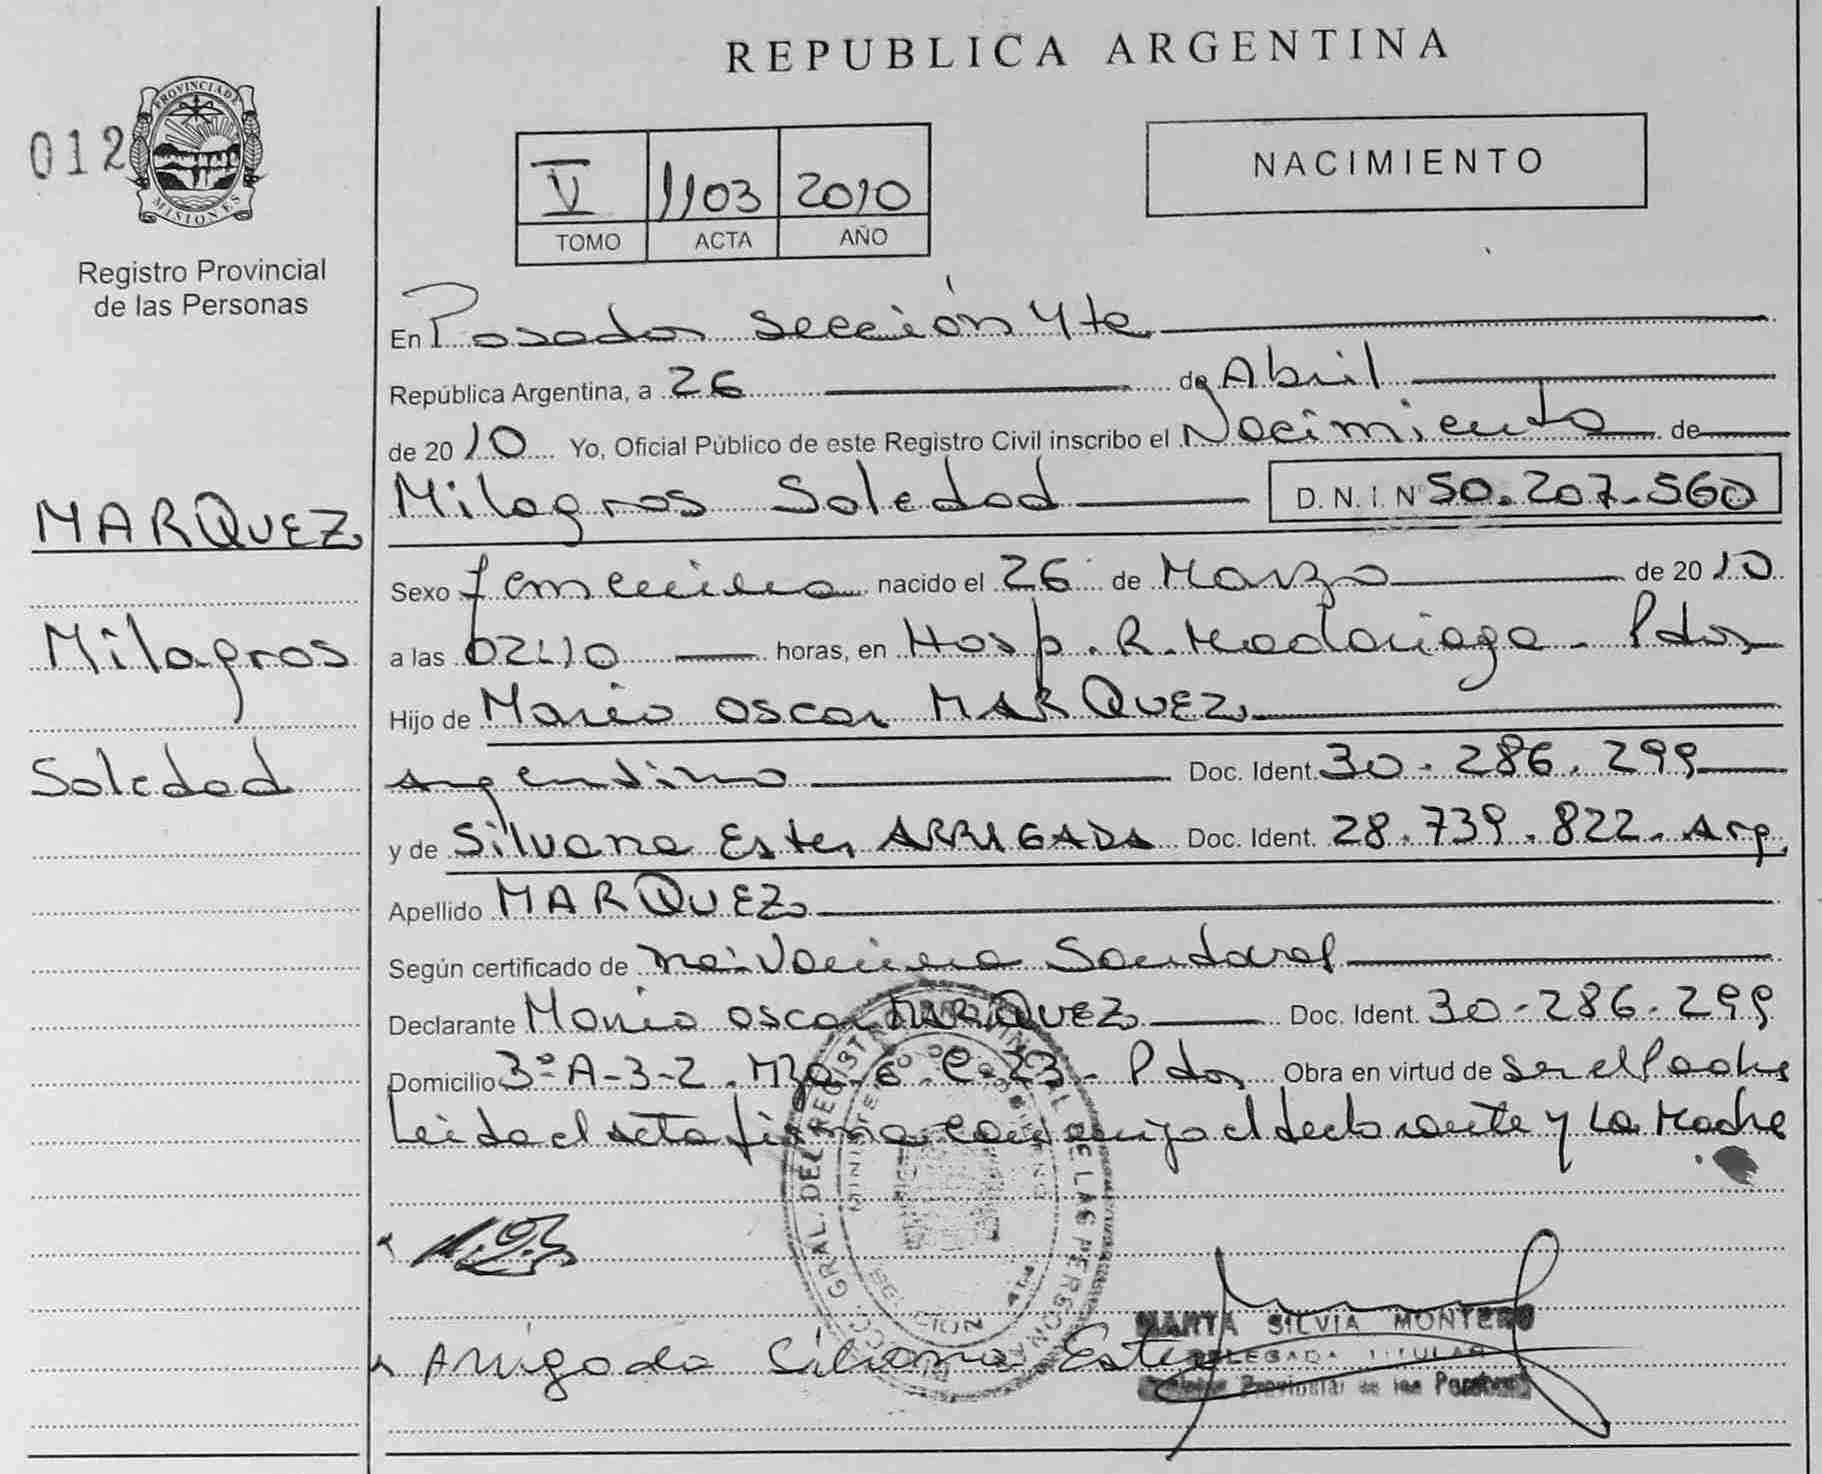 REPUBLICA ARGENTINA
012
PROVINCIA DE
MISIONES
Registro Provincial
de las Personas
V 1103 2010
TOMO ACTA AÑO
NACIMIENTO
En Posadas Sección 4ta
República Argentina, a 26 de Abril
de 2010 Yo, Oficial Público de este Registro Civil inscribo el Nacimiento de
MARQUEZ
Milagros
Soledad
Milagros Soledad D.N.I. N 50.207.560
Sexo femenino nacido el 26 de Marzo de 2010
a las 0240 horas, en Hosp. R. Madariaga - Pdas
Hijo de Mario Oscar MARQUEZ
argentino Doc. Ident. 30.286.299
y de Silvana Ester ARRIGADA Doc. Ident. 28.739.822 - Arg.
Apellido MARQUEZ
Según certificado de Sandoval
Declarante Mario Oscar MARQUEZ Doc. Ident. 30-286-299
Domicilio 3º A-3-2. Mza-6. C-23- Pdas Obra en virtud de Ser el Padre
Leida el acta firma conmigo el declarante y La Madre
Arrigada Silvana Ester
MARTA SILVIA MONTERO
DELEGADA TITULAR
Provincial de las Personas